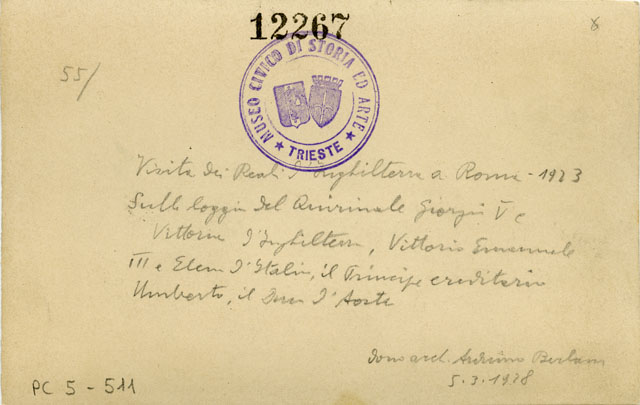 12267
55/
MUSEO CIVICO DI STORIA ED ARTE
★ TRIESTE ★
Visita dei Reali d'Inghilterra a Roma - 1923
Sulla loggia del Quirinale Giorgio V e
Vittoria d'Inghilterra, Vittorio Emanuele
III e Elena d'Italia, il Principe ereditario
Umberto, il Duca d'Aosta
dono arch. Berlam
5.3.1928
PC 5 - 511